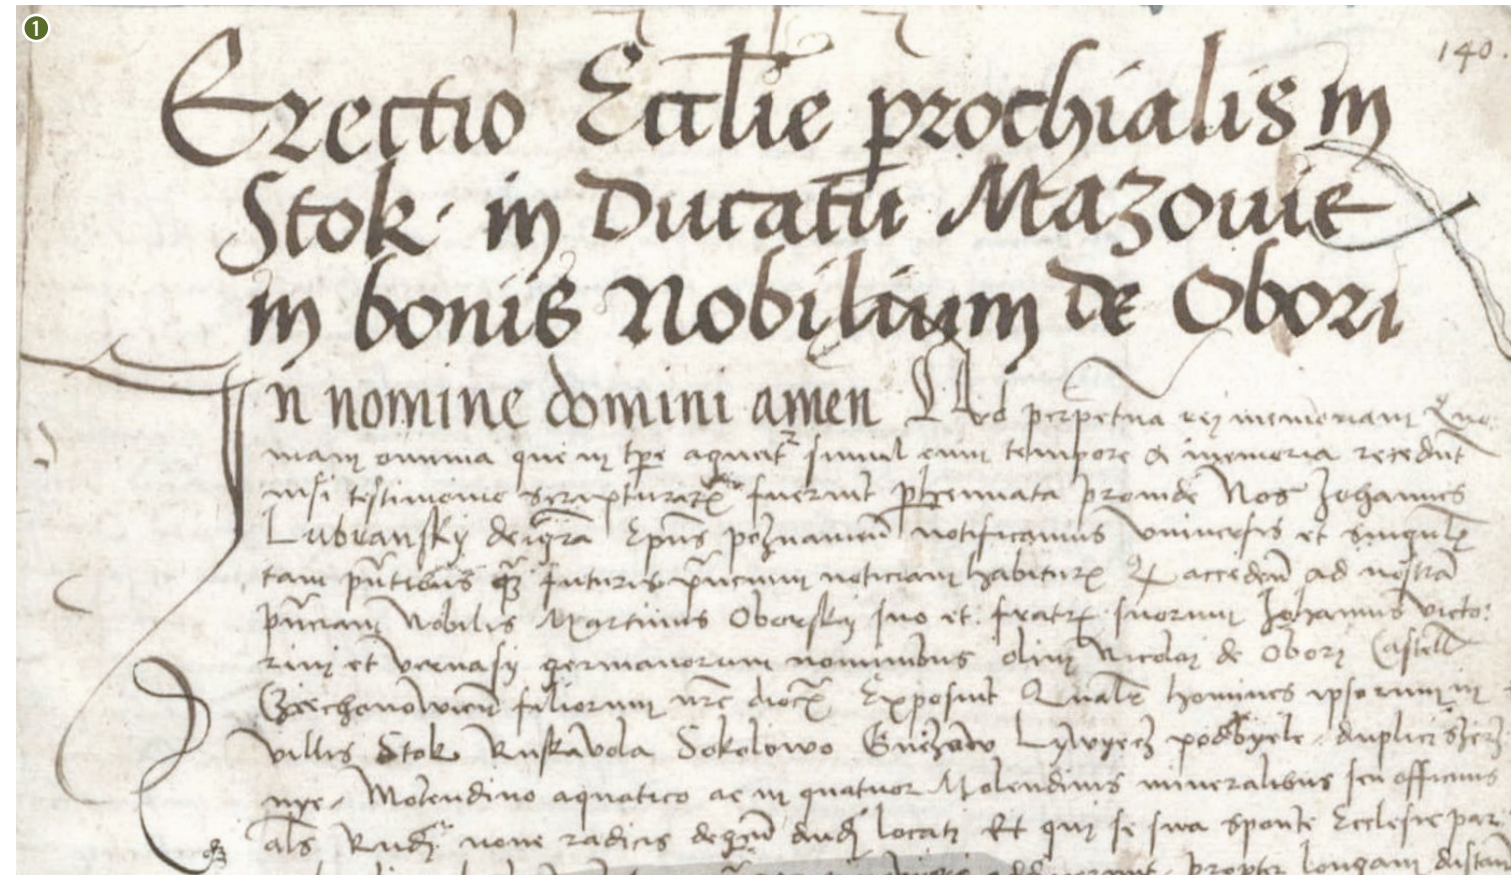 1
140.
Erectio Eccĺie prochialis in
Stok · in Ducatu Mazouie
in bonis Nobilium de Obori
In nomine domini amen Ad perpetua rej memoriam Quo
niam omnia que in tpe aguntr simul cum tempore a memoria recedunt
nisi testimonio scripturarx fuerint phennata proinde Nos Johannes
Lubransky dei gra Epus poznanien notificamus vniuersis et singulx
tam pntibus qx futuris pncium noticiam habiturx Qx acceden ad nostra
pnciam Nobilis Martinus Oborsky suo et fratrx suorum Johannis victo:
rini et germanorum nominibus olim Nicolaj de Oborj Castell
Czechonowien filiorum nre diocx Exposuit Qualr homines ipsorum in
villis Stok Ruskavola Sokolowo podbyele duplici
nye Molendino aquatico ac in quatuor Molendinis mineralibus seu officinis
als Rudx noue radicis locatj Et qui se sua sponte Ecclesie par
propter longam distan